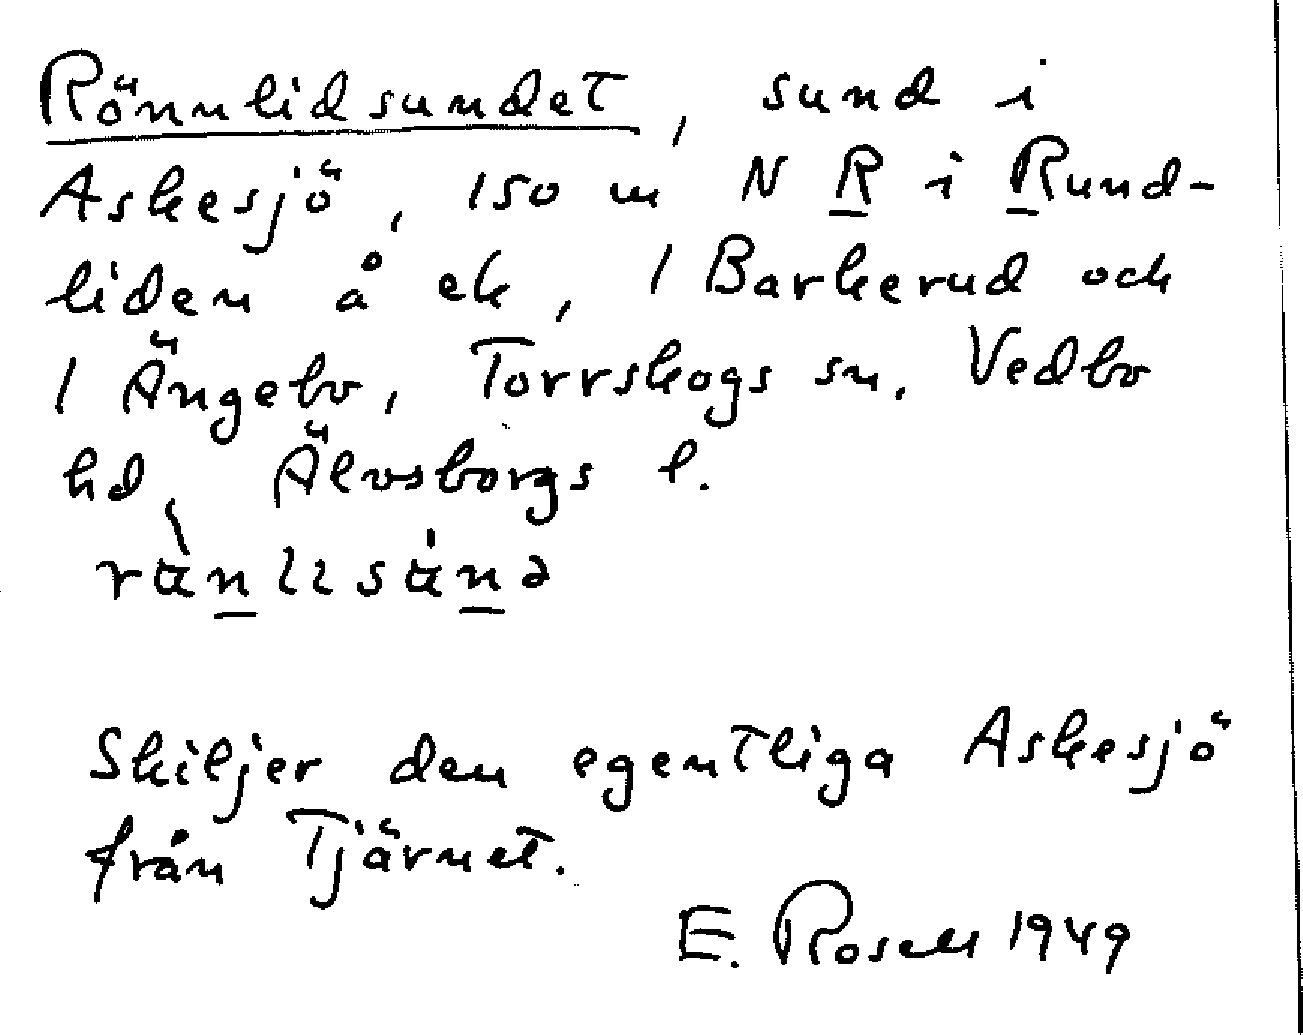 Rönnlidsundet, sund i
Askesjö, 150 m N R i Rund-
liden å ek, 1 Barkerud och
1 Ängebo, Torrskogs sn. Vedbo
hd, Älvsborgs l.
Skiljer den egentliga Askesjö
från Tjärnet.
E. Rosell 1949